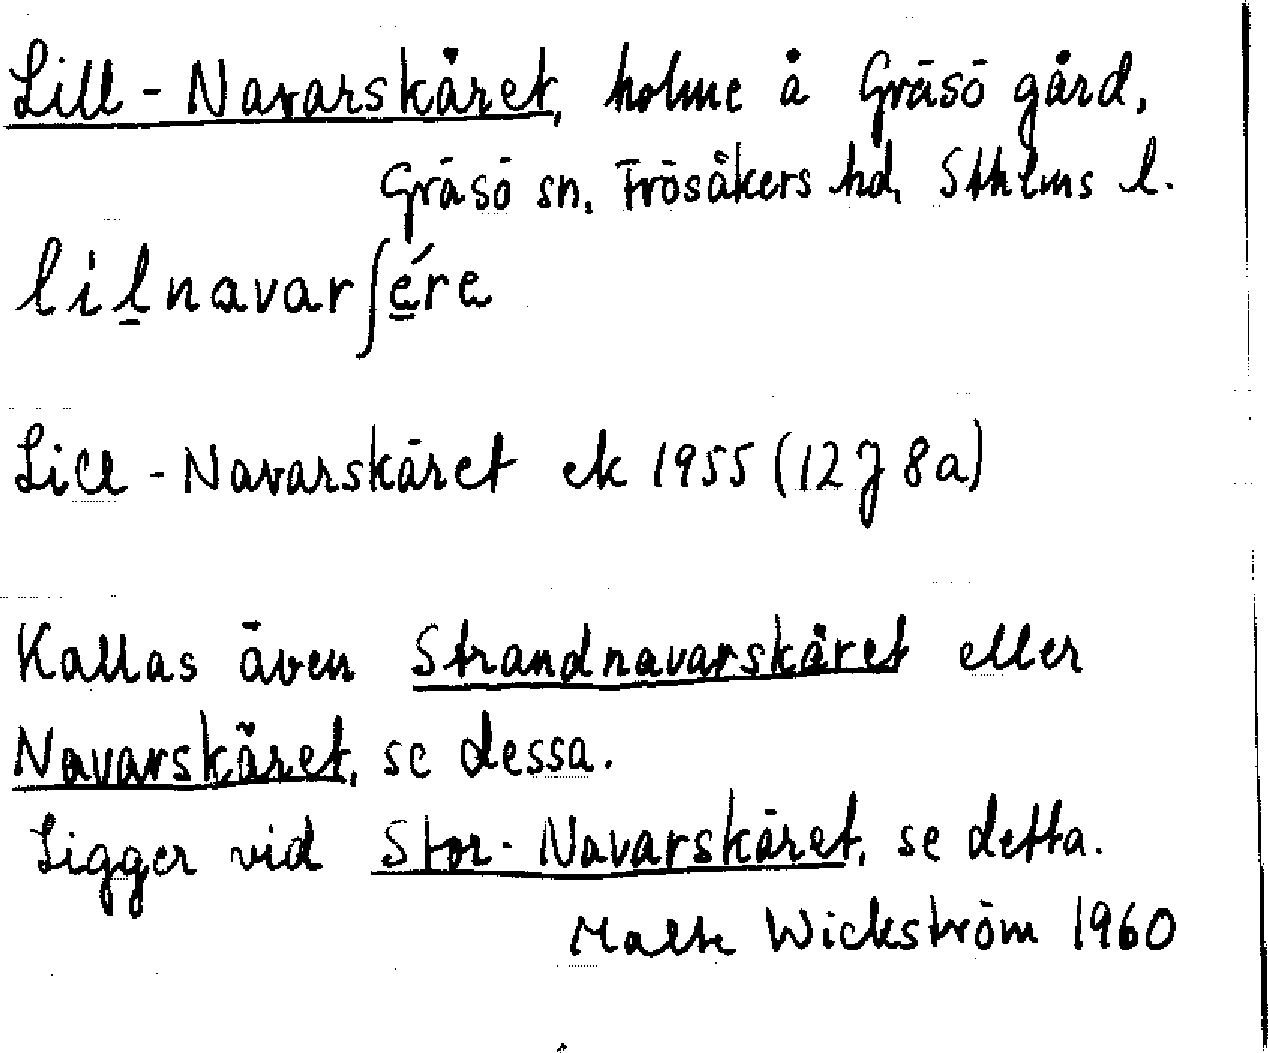 Lill-Navarskäret, holme å Gräsö gård,
Gräsö sn. Frösåkers hd, Sthlms l.
lilnavarʃére
Lill-Navarskäret ek 1955 (12J 8a)
Kallas även Strandnavarskäret eller
Navarskäret, se dessa.
Ligger vid Stor-Navarskäret, se detta.
Malte Wickström 1960